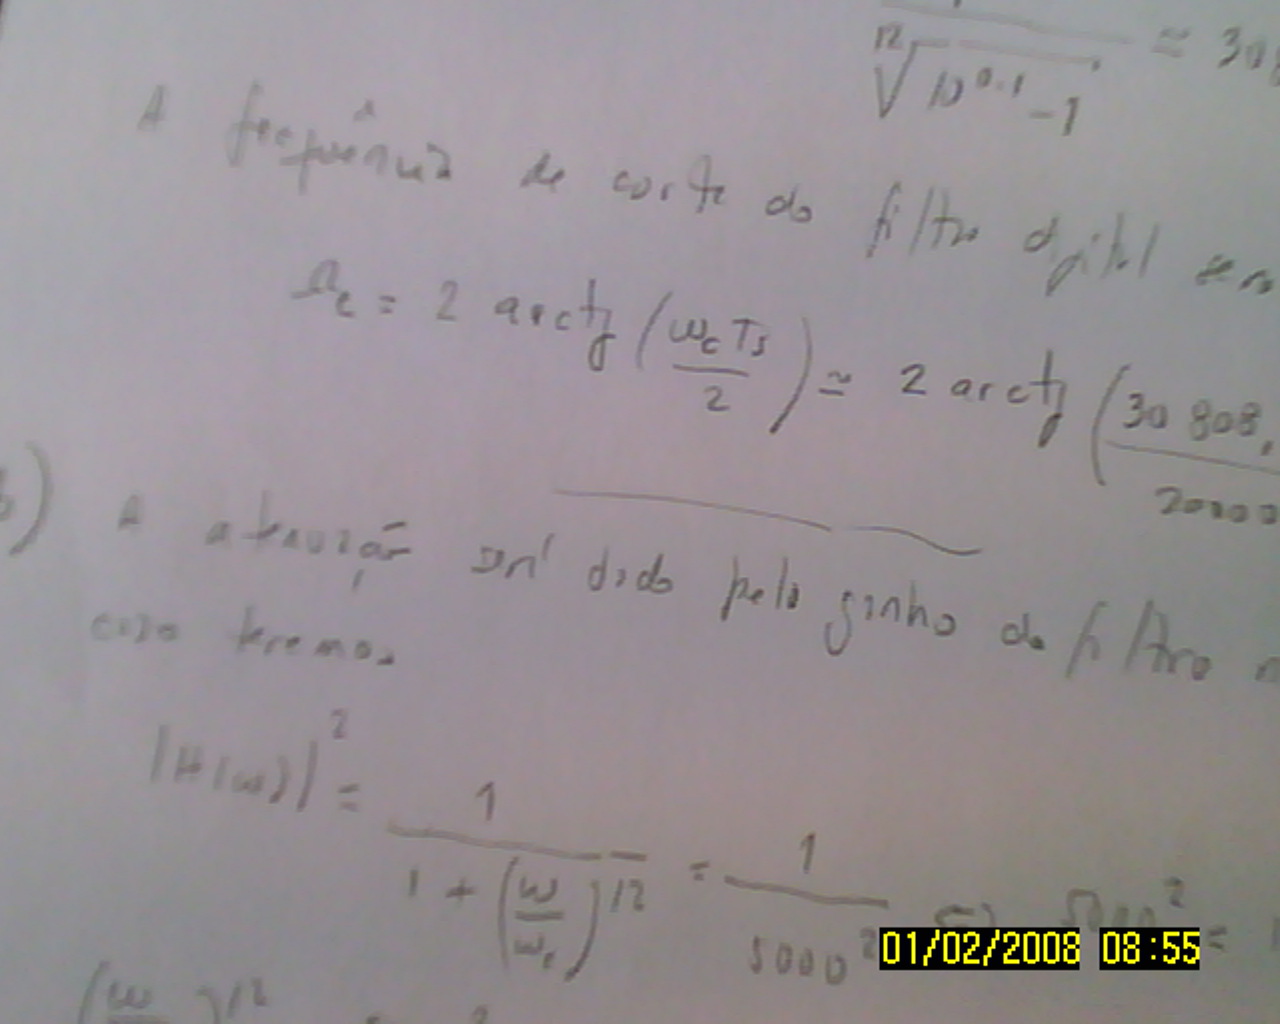 ¹²√(10^0.1 - 1) ≈ 308
A frequência de corte do filtro digital será
Ωc = 2 arctg (ωc Ts / 2) ≃ 2 arctg (30 808, / 20000
b) A atenuação será dada pelo ganho do filtro n
caso teremos
|H(ω)|² = 1 / (1 + (ω/ωc)^12) = 1 / 5000² ⇒ 5000² =
(ω )^12
01/02/2008 08:55